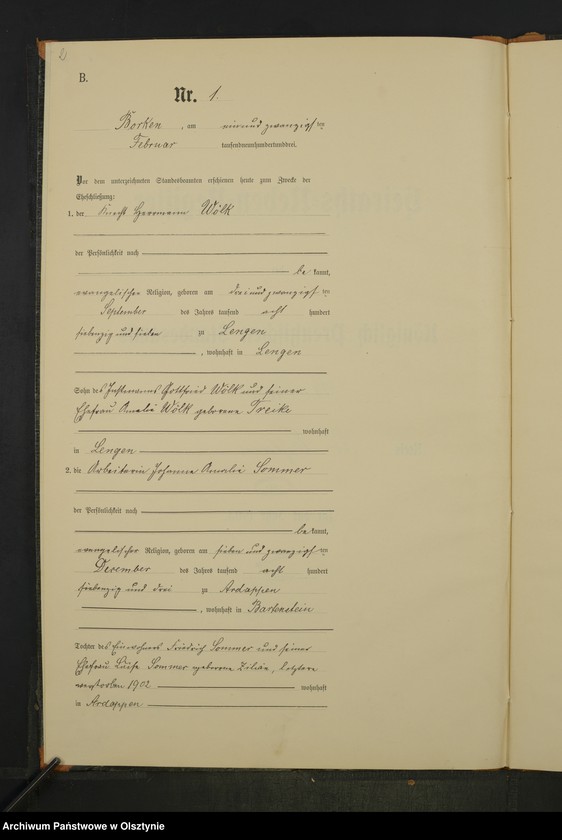 2
B.
Nr. 1.
Borken, am einundzwanzigsten
Februar tausendneunhundertunddrei.
Vor dem unterzeichneten Standesbeamten erschienen heute zum Zwecke der
Eheschließung:
1. der Knecht Herrmann Wölk
der Persönlichkeit nach
be kannt,
evangelischer Religion, geboren am dreiundzwanzigsten
September des Jahres tausend acht hundert
siebenzig und sieben zu Lengen
, wohnhaft in Lengen
Sohn des Instmanns Gottfried Wölk und seiner
Ehefrau Amalie Wölk geborene Treike
wohnhaft
in Lengen
2. die Arbeiterin Johanna Amalie Sommer
der Persönlichkeit nach
be kannt,
evangelischer Religion, geboren am sieben und zwanzigsten
Dezember des Jahres tausend acht hundert
siebenzig und drei zu Ardappen
, wohnhaft in Bartenstein
Tochter des Einwohners Friedrich Sommer und seiner
Ehefrau Luise Sommer geborene Zilian, letztere
verstorben 1902 wohnhaft
in Ardappen
Archiwum Państwowe w Olsztynie